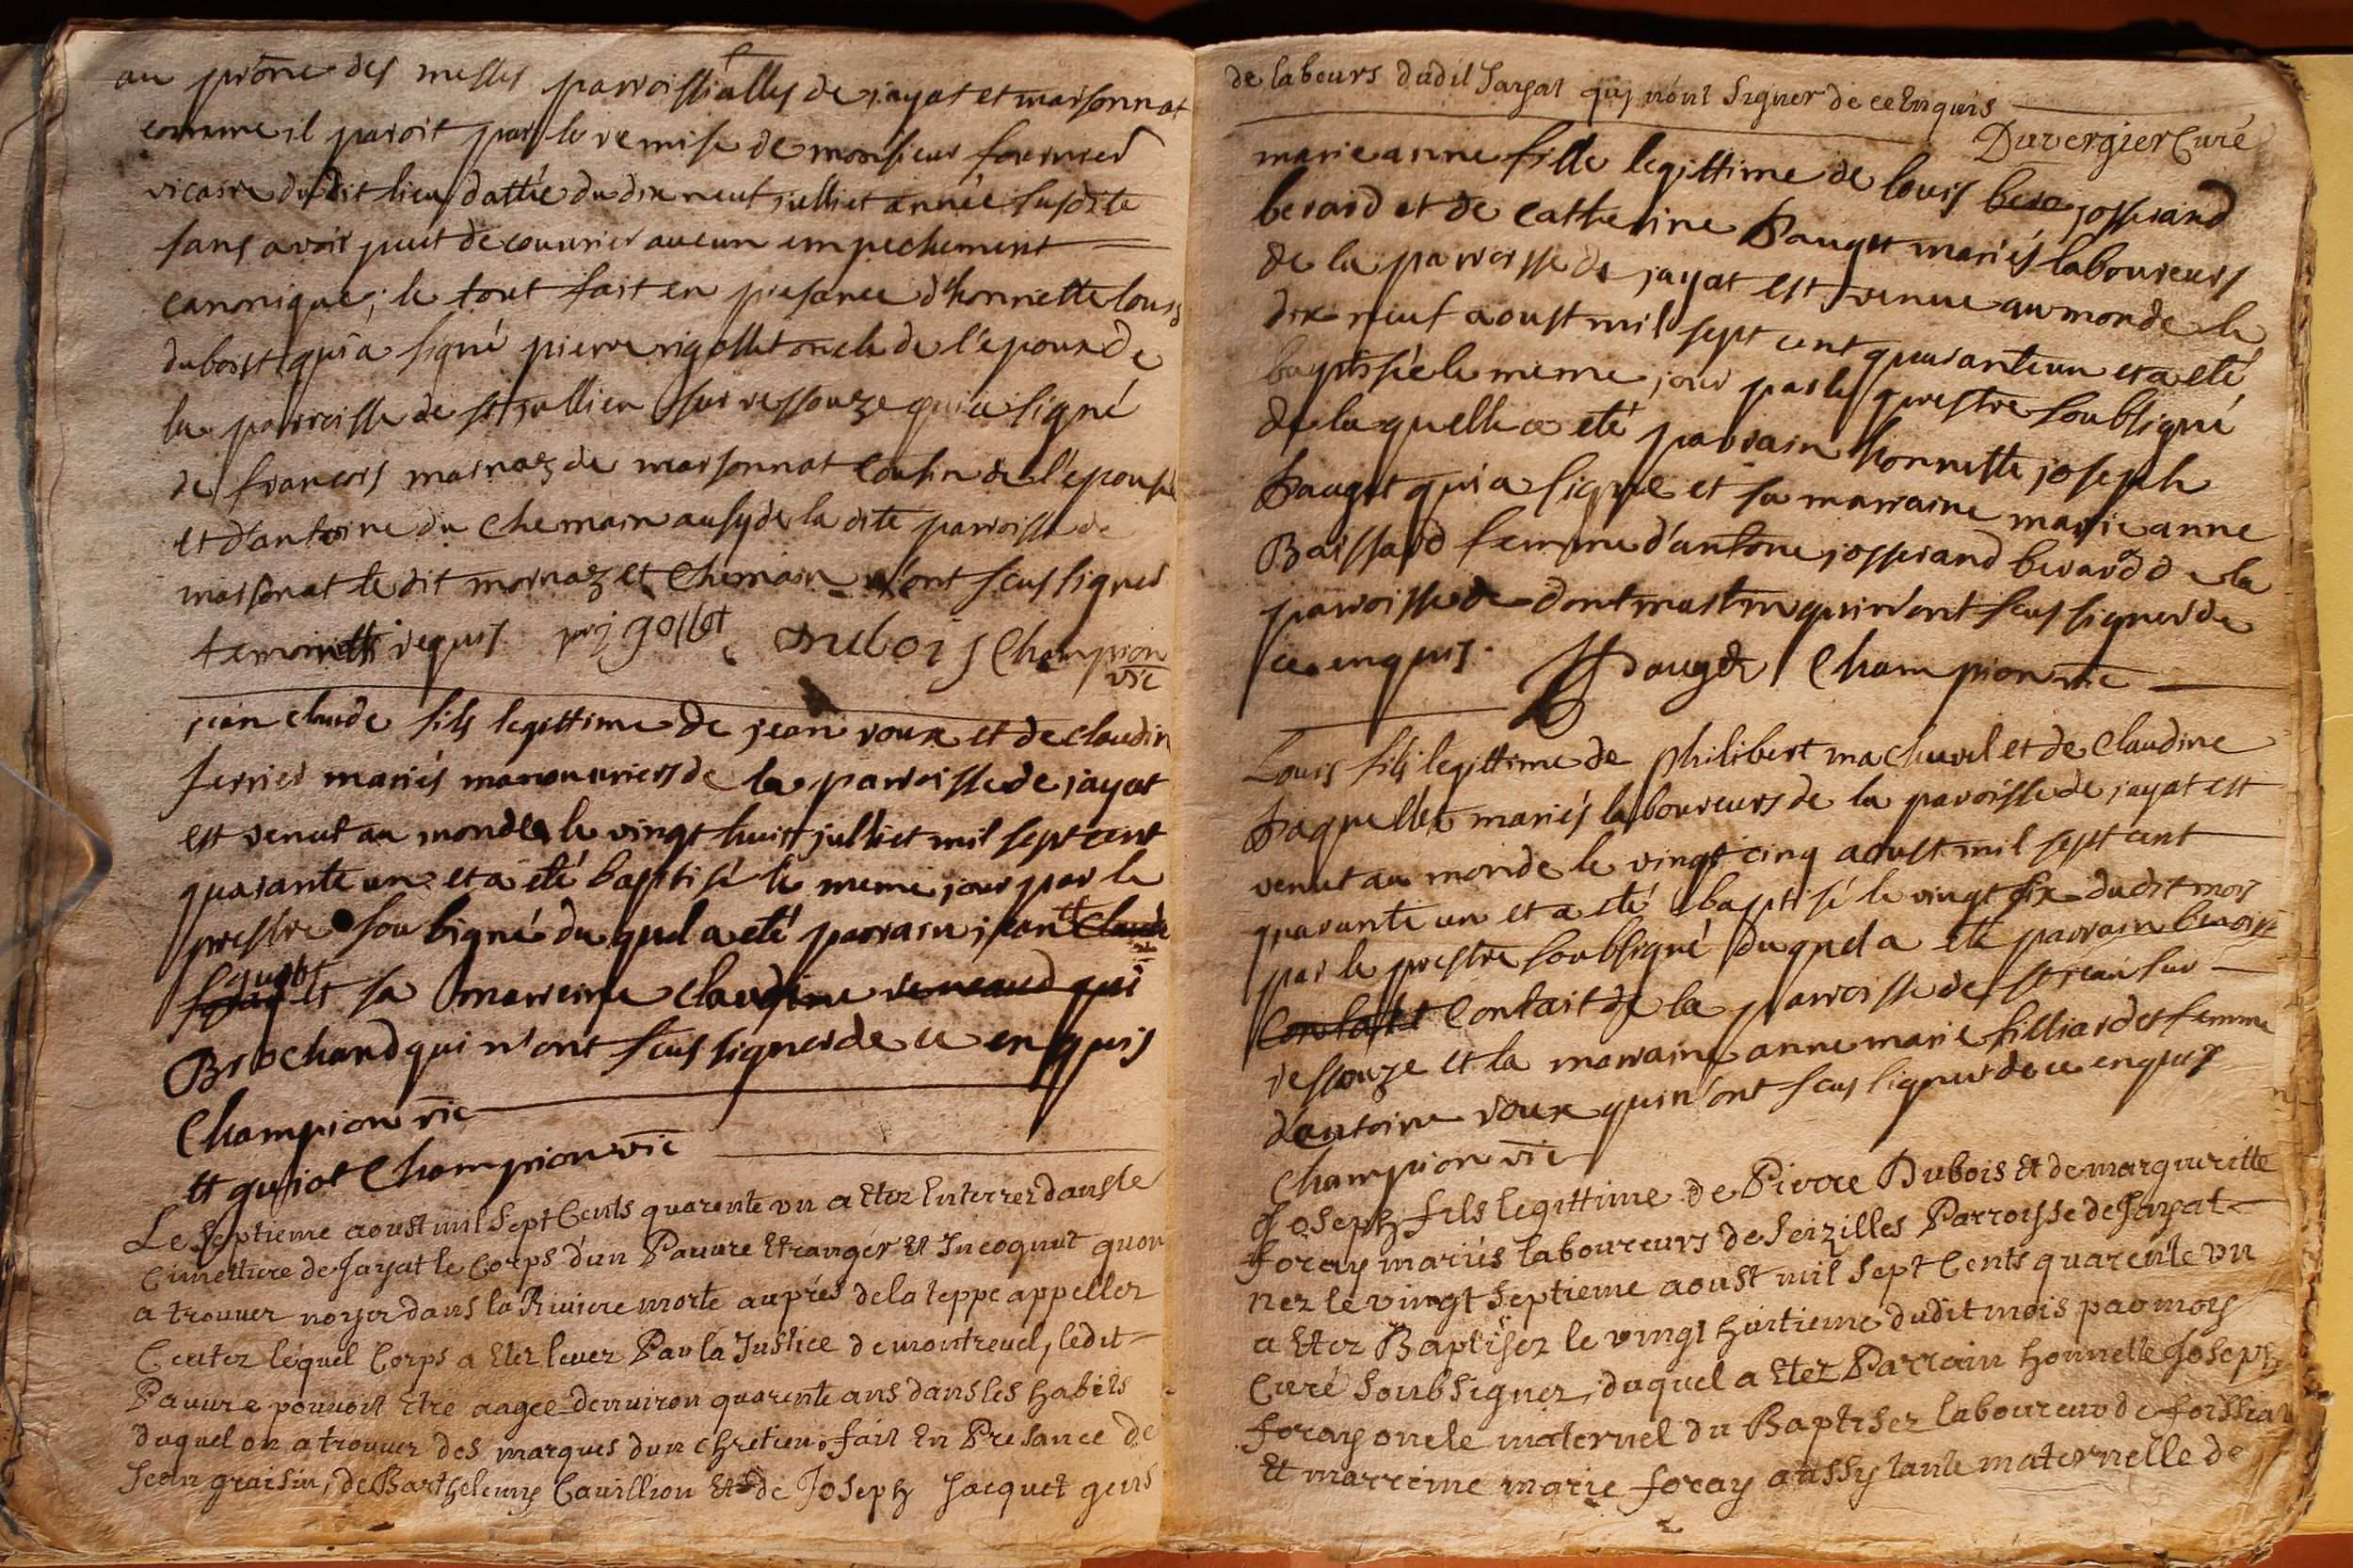 au prône des messes parroissialles de jayat et marsonnat
comme il paroit par le remise de monsieur fournier
vicaire dudit lieu dattée du dix neuf julliet année susdite
sans avoir peut decouvrier aucun empechement
canonique; le tout fait en presance d'honnette louis
duboist qui a signé pierre rigollet oncle de l'epoux de
la parroisse de st jullien sur ressouze qui a signé
de francois marnaz de marsonnat cousin de l'epouse
et d'antoine du chemain ausy de la dite parroisse de
marsonat le dit mornaz et chemain n'ont sceus signer
requis p rigollet Dubois Champion
vic
jean claude fils legittime de jean roux et de claudin
ferrier mariés manouvriers de la parroisse de jayat
est venut au monde le vingt huit julliet mil sept cent
quarante un et a eté baptisé le meme jour par le
prestre soubigné du quel a eté parrain jean claude
et sa marreine claudine reneaud qui
Brochand qui n'ont sceus signer de ce enquis
Champion vic
et guiot Champion vic
Le Septieme aoust mil Sept Cents quarente un a Etez Enterrez dans le
Cimettiere de Jayat le Corps d'un Pauvre Etranger Et Incognut quon
a trouver noyer dans la Riviere morte auprés de la teppe appellez
Ceutez lequel Corps a Etez levez Par la Justice de montrevel, ledit
Pauvre pouvoit Etre aagee denviron quarente ans dans les habits
duquel on a trouver des marques dun chretien, fait En Presance de
Jean graisin, de Barthelemy Cavillion Et de Joseph Jacquet gens
de labeurs dudit Jayat qui n'ont Signer de ce Enquis
Duvergier Curé
marie anne fille legittime de louis bera josserand
berard et de catherine pauget mariés laboureurs
de la parroisse de jayat est venue au monde le
dix neuf aoust mil sept cent quarante un et a eté
baptisée le meme jour par le prestre soubsigné
de la quelle a eté parrain honneste joseph
pauget qui a signe et sa marraine marie anne
Baissard femme d'antoine josserand berard de la
parroisse de dontmastin qui n'ont sceus signer de
ce enquis. J pauget Champion vic
Louis fils legittime de philibert machurel et de Claudine
paquellet mariés laboureurs de la paroisse de jayat est
venut au monde le vingt cinq aoust mil sept cent
quarante un et a eté baptisé le vingt six du dit mois
par le prestre soubsigné du quel a eté parrain benoist
Contait Contait de la parroisse de st jean sur
ressouze et la marraine anne marie filliardet femme
d'antoine roux qui n'ont sceus signer de ce enquis
Champion vic
Joseph fils legittime de Pierre Dubois Et de margueritte
foray mariés laboureurs de Seizilles Parroisse de Jayat
nez le vingt Septieme aoust mil Sept Cents quarente un
a Etez Baptisez le vingt huitieme dudit mois par moy
Curé Soubsignez, duquel a Etez Parrain honnette Joseph
foray oncle maternel du Baptisez laboureur de foissiat
Et marreine marie foray aussy tante maternelle de